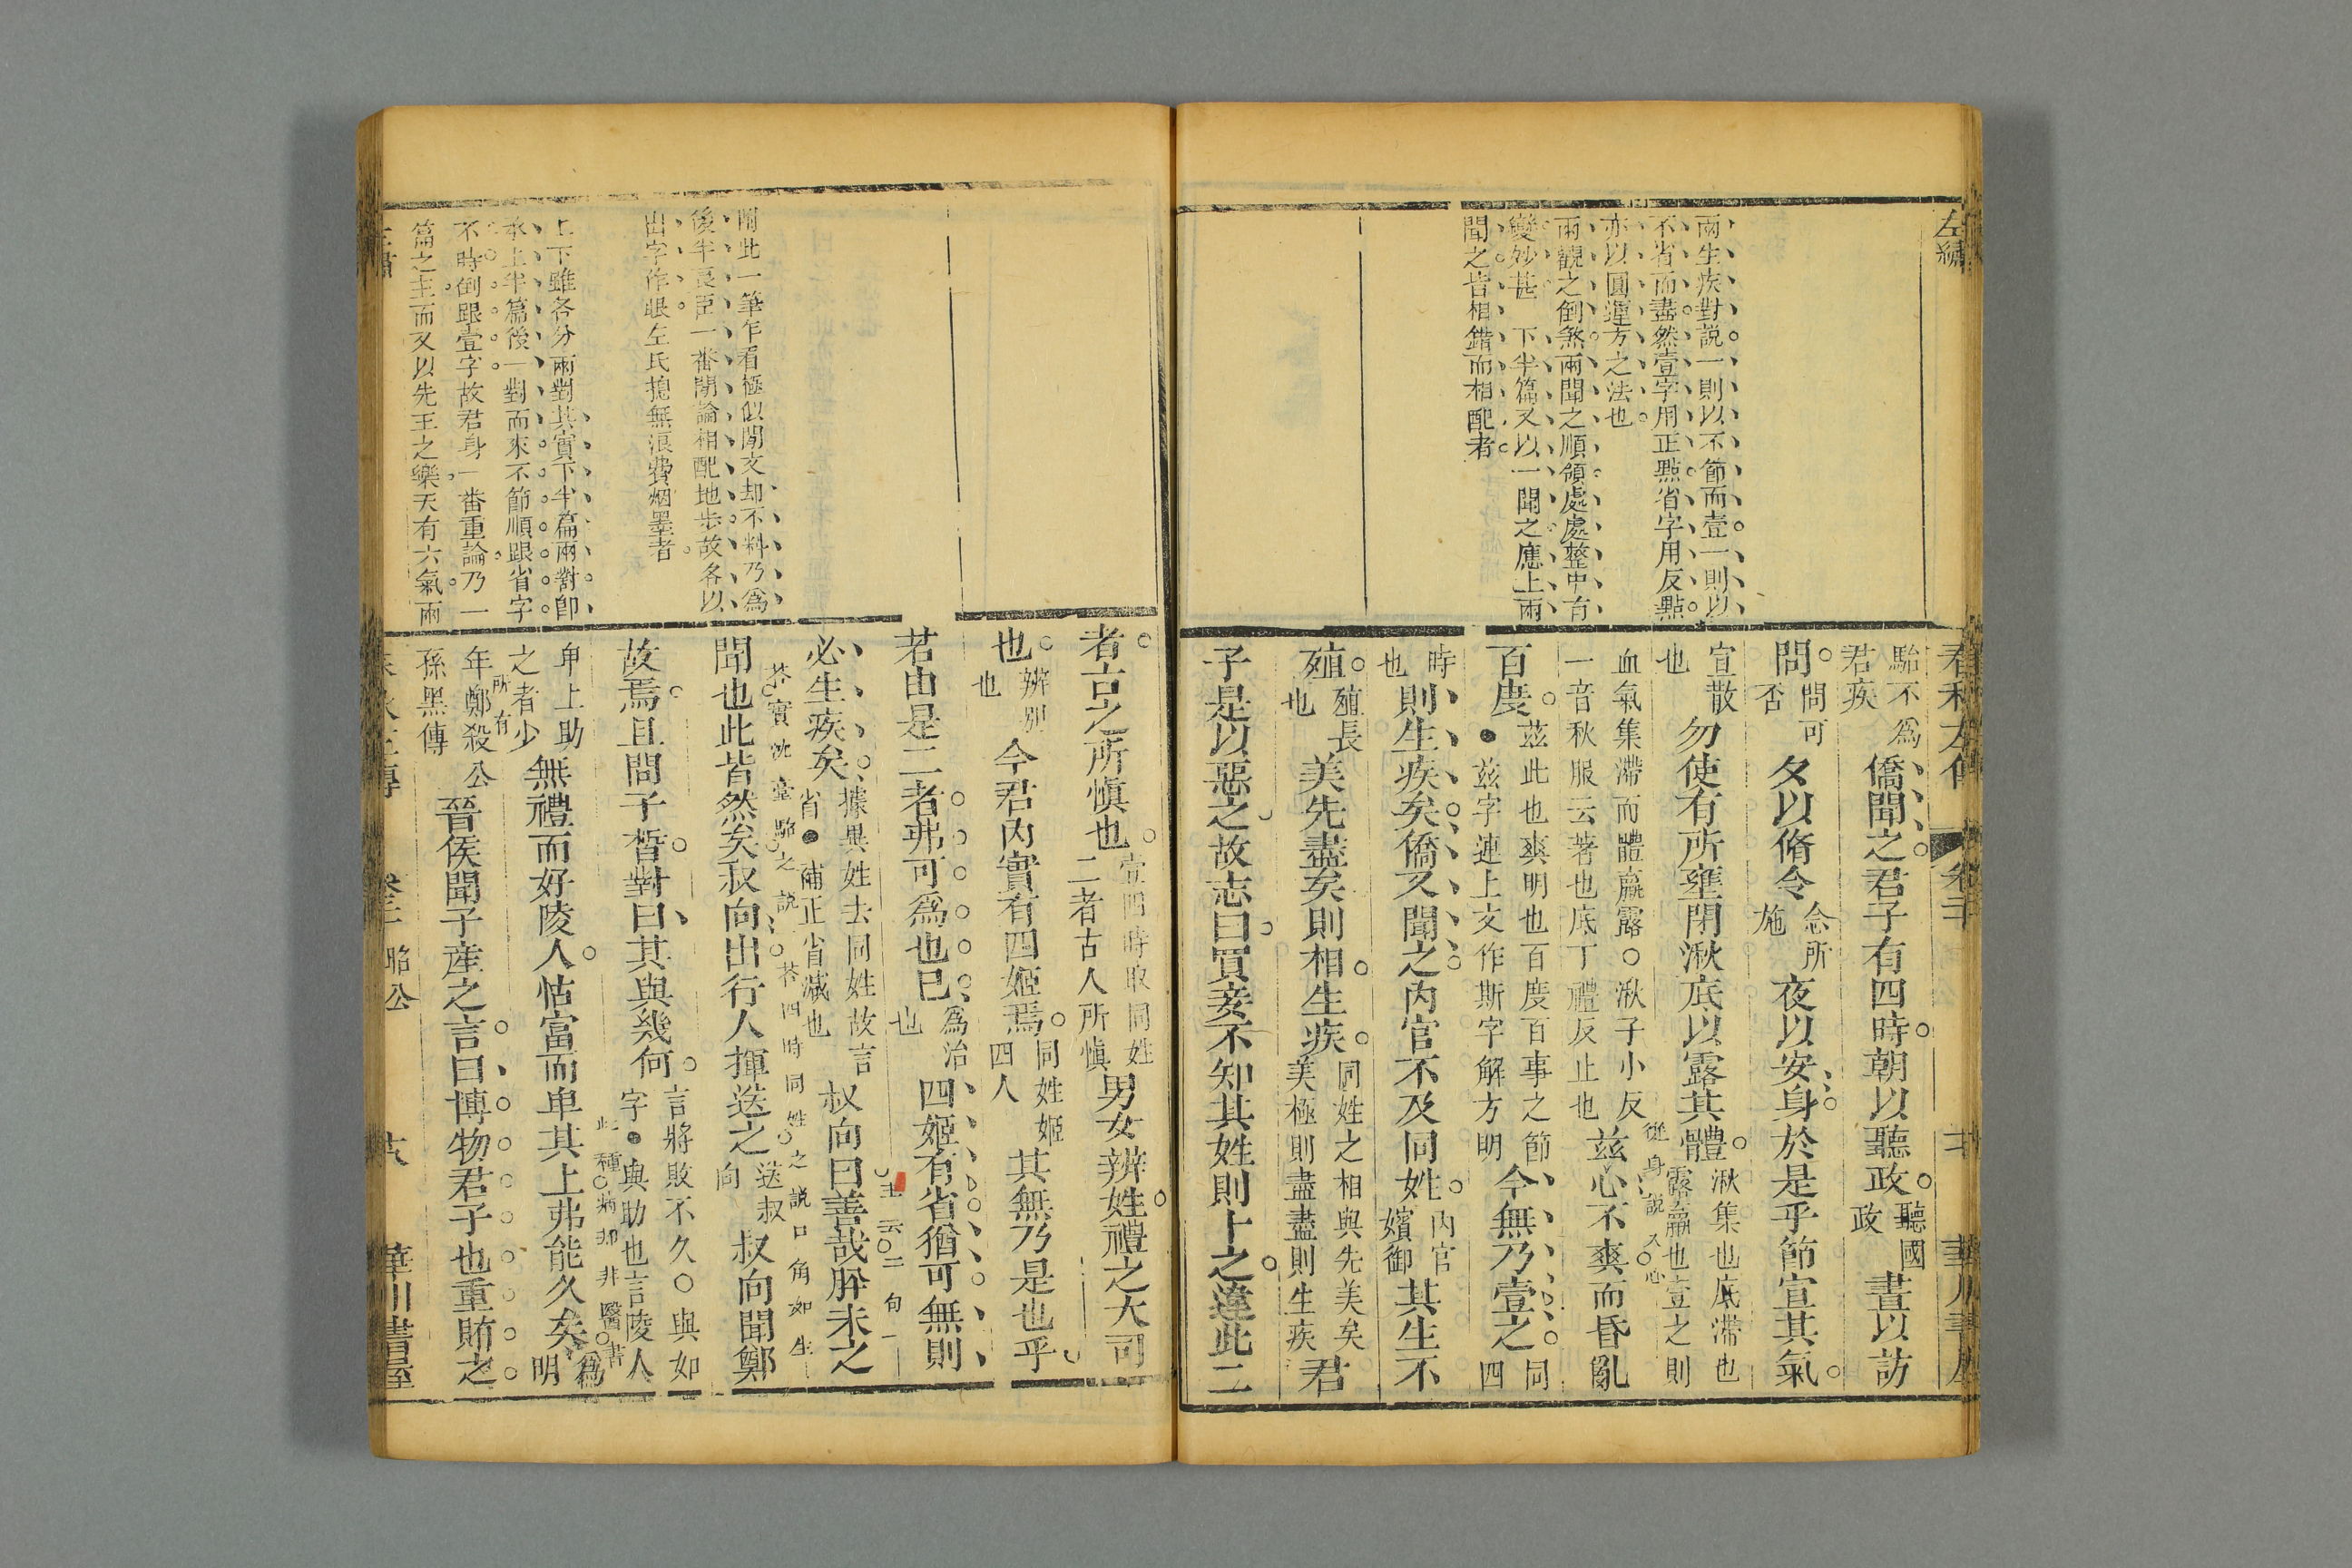 左繡
兩生疾對説一則以不節而壹一則以
不省而盡然壹字用正點省字用反點
亦以圓運方之法也
兩觀之倒煞兩聞之順領處處整中有
變妙甚 下半篇又以一聞之應上兩
聞之皆相錯而相配者
駘不爲君疾僑聞之君子有四時朝以聽政聽國政晝以訪
問問可否夕以脩令念所施夜以安身於是乎節宣其氣
宣散也勿使有所壅閉湫底以露其體湫集也底滯也露羸也壹之則
血氣集滯而體羸露○湫子小反一音秋服云著也底丁禮反止也從身説入心茲心不爽而昏亂
百度茲此也爽明也百度百事之節●茲字連上文作斯字解方明今無乃壹之同四
時也則生疾矣僑又聞之内官不及同姓内官嬪御其生不
殖殖長也美先盡矣則相生疾同姓之相與先美矣美極則盡盡則生疾君
子是以惡之故志曰買妾不知其姓則卜之違此二
閒此一筆乍看極似閒文却不料乃爲
後半良臣一番閒論相配地步故各以
出字作眼左氏摠無浪費烟墨者
上下雖各分兩對其實下半篇兩對卽
承上半篇後一對而來不節順跟省字
不時倒跟壹字故君身一番重論乃一
篇之主而又以先王之樂天有六氣兩
者古之所愼也壹四時取同姓二者古人所愼男女辨姓禮之大司
也辨别也今君内實有四姬焉同姓姬四人其無乃是也乎
若由是二者弗可爲也已爲治也四姬有省猶可無則
必生疾矣據異姓去同姓故言省●補正省減也叔向曰善哉肸未之
聞也此皆然矣叔向出行人揮送之送叔向叔向聞鄭
故焉且問子晳對曰其與幾何言將敗不久○與如字●與助也言陵人
無禮而好陵人怙富而卑其上弗能久矣爲明
年鄭殺公孫黑傳晉侯聞子産之言曰博物君子也重賄之
昭公
華川書屋